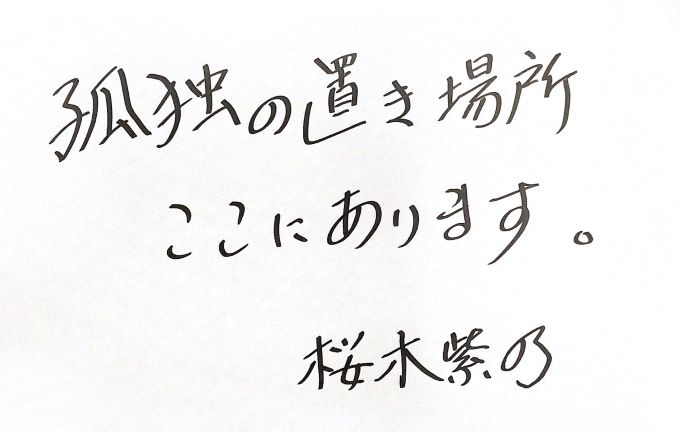 孤独の置き場所
ここにあります。
桜木紫乃